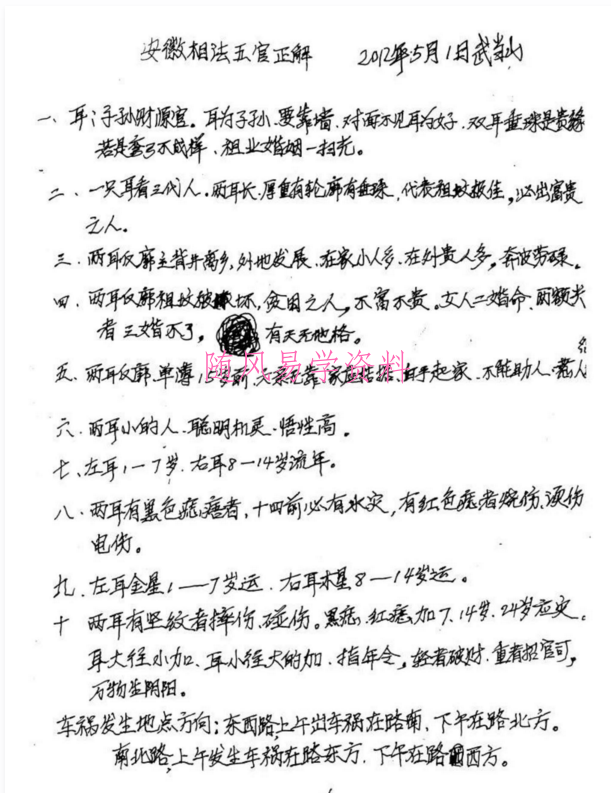 安徽相法五官正解 2012年5月1日武当山
一、耳:子孙财源宫。耳为子孙、要靠墙、对面不见耳为好、双耳垂珠是贵缘
若是塞了不成样、祖业婚姻一扫光。
二、一只耳看三代人。两耳长、厚重有轮廓有垂珠,代表祖坟极佳,必出富贵
之人。
三、两耳反廓主背井离乡,外地发展、在家小人多、在外贵人多,奔波劳碌。
四、两耳反廓祖坟破坏,贫困之人,不富不贵。女人二婚命、两颧尖
者三婚不了, 有天无地格。
随风易学资料
五、两耳反廓、单薄、15岁前、家 白手起家、不能助人、
六、两耳小的人、聪明机灵、悟性高。
七、左耳1一7岁、右耳8一14岁流年。
八、两耳有黑色痣痦者,十四前必有水灾,有红色痣者烧伤、烫伤
电伤。
九、左耳金星1——7岁运、右耳木星8一14岁运。
十 两耳有竖纹者摔伤、碰伤。黑痣、红痣、加7、14岁、24岁应灾。
耳大往小加、耳小往大的加、指年令,轻者破财、重者招官司,
万物生阴阳。
车祸发生地点方向:东西路上午出车祸在路南、下午在路北方。
南北路,上午发生车祸在路东方、下午在路西方。